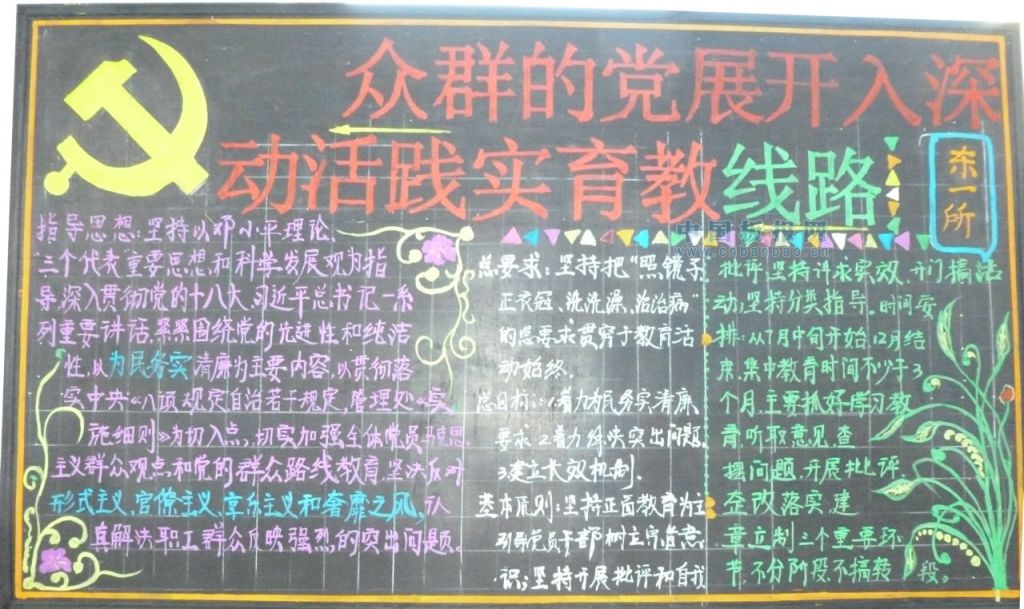 深入开展党的群众
路线教育实践活动
东一所
中国板报网
www.cnbanbao.cn
指导思想:坚持以邓小平理论、
三个代表重要思想和科学发展观为指
导,深入贯彻党的十八大、习近平总书记一系
列重要讲话,紧紧围绕党的先进性和纯洁
性,以为民务实清廉为主要内容,以贯彻落
实中央《八项规定》自治若干规定,管理处《实
施细则》为切入点,切实加强全体党员马克思
主义群众观点和党的群众路线教育,坚决反对
形式主义,官僚主义,享乐主义和奢靡之风,认
真解决职工群众反映强烈的突出问题。
总要求:坚持把“照镜子
正衣冠、洗洗澡、治治病”
的总要求贯穿于教育活
动始终.
总目标:1着力为民务实清廉
要求.2.着力解决突出问题.
3建立长效机制.
基本原则:坚持正面教育为主
引导党员干部树立宗旨意
识;坚持开展批评和自我
批评;坚持讲求实效、开门搞活
动,坚持分类指导。时间安
排:从7月中旬开始,12月结
束,集中教育时间不少于3
个月.主要抓好学习教
育听取意见,查
摆问题,开展批评.
整改落实,建
章立制三个重要环
节,不分阶段,不搞转段。